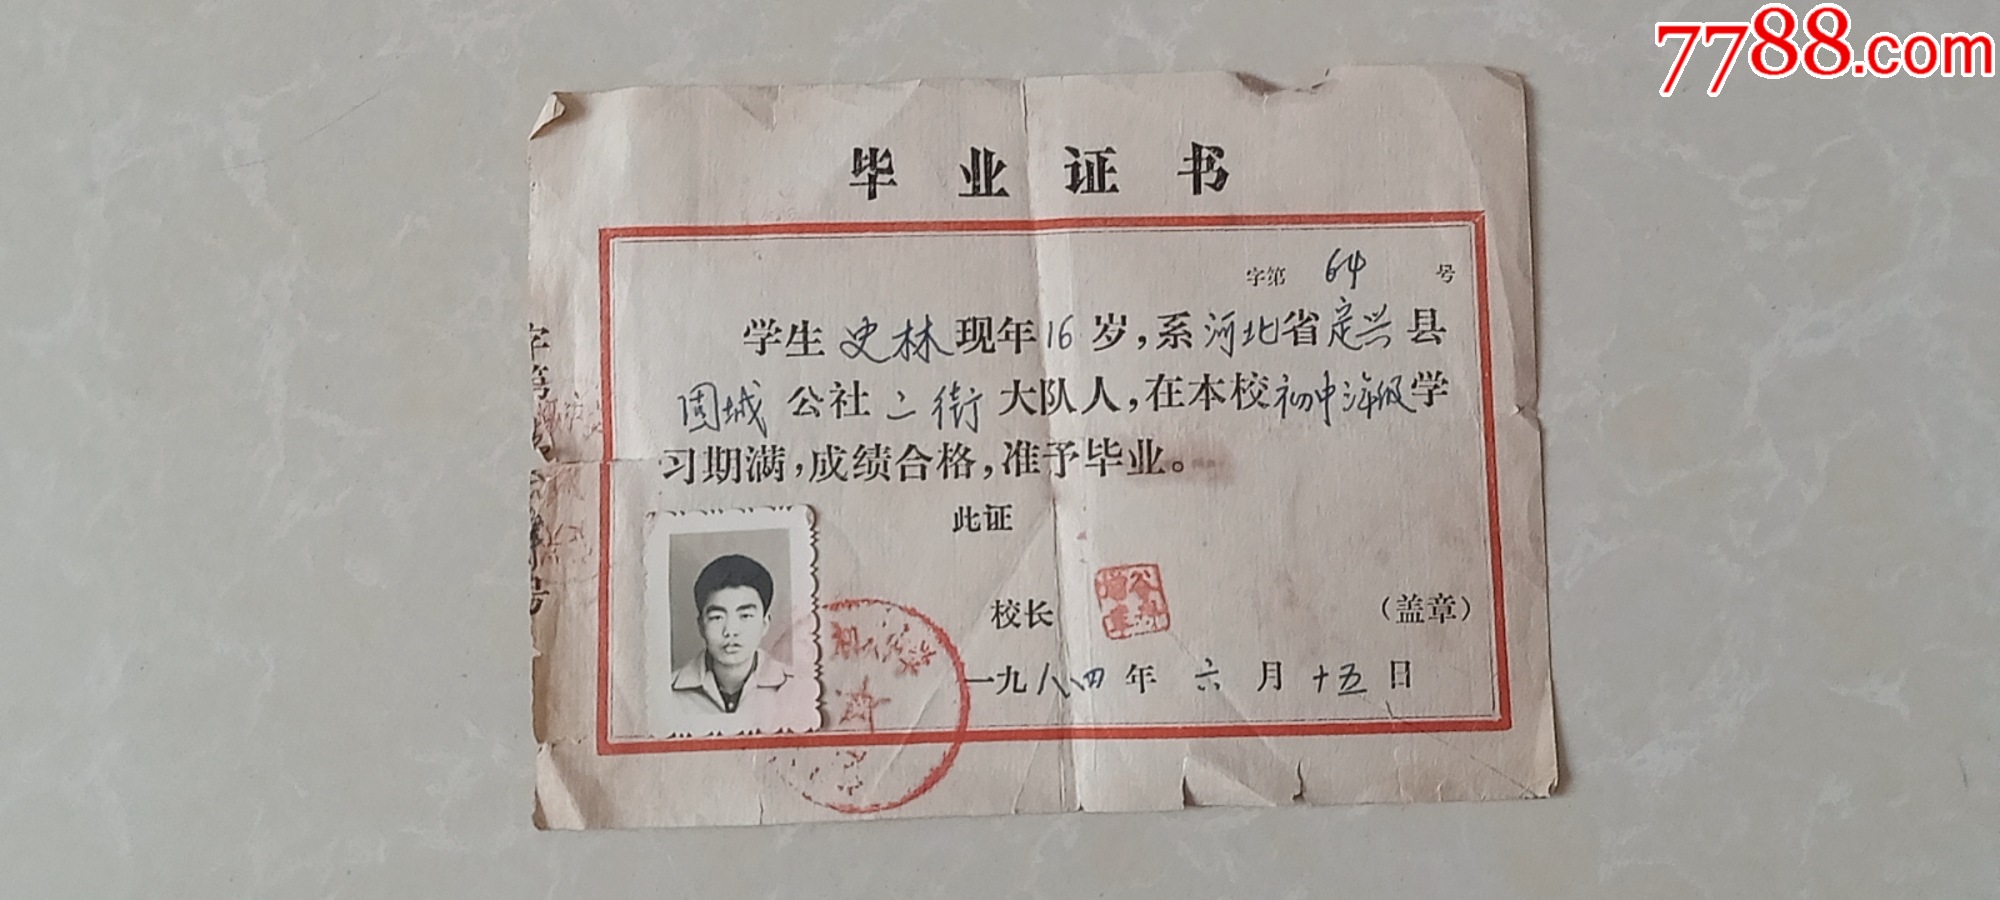 7788.com
毕业证书
字第 64 号
学生史林现年16岁,系河北省定兴县
固城公社二街大队人,在本校初中三年级学
习期满,成绩合格,准予毕业。
此证
校长 (盖章)
一九八四年六月十五日
字第
号